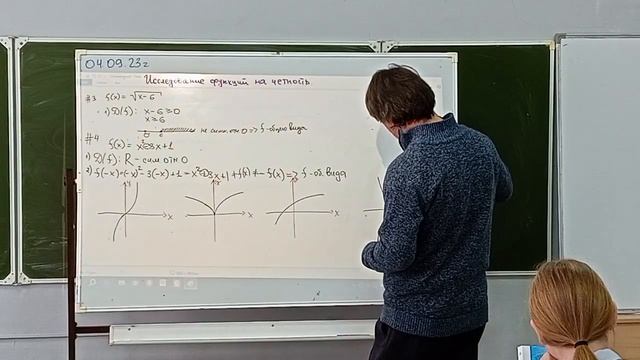 04.09.23г
Исследование функций на четность
#3 f(x) = √x-6
1) D(f): x-6≥0
x≥6
0 6 не симм. отн 0 => f - общего вида
#4 f(x) = x²-3x+1
1) D(f): R - сим отн 0
2) f(-x)=(-x)²-3(-x)+1 = x²+3x+1 ≠ f(x) ≠ -f(x) => f - об. вида
y
x
x
x